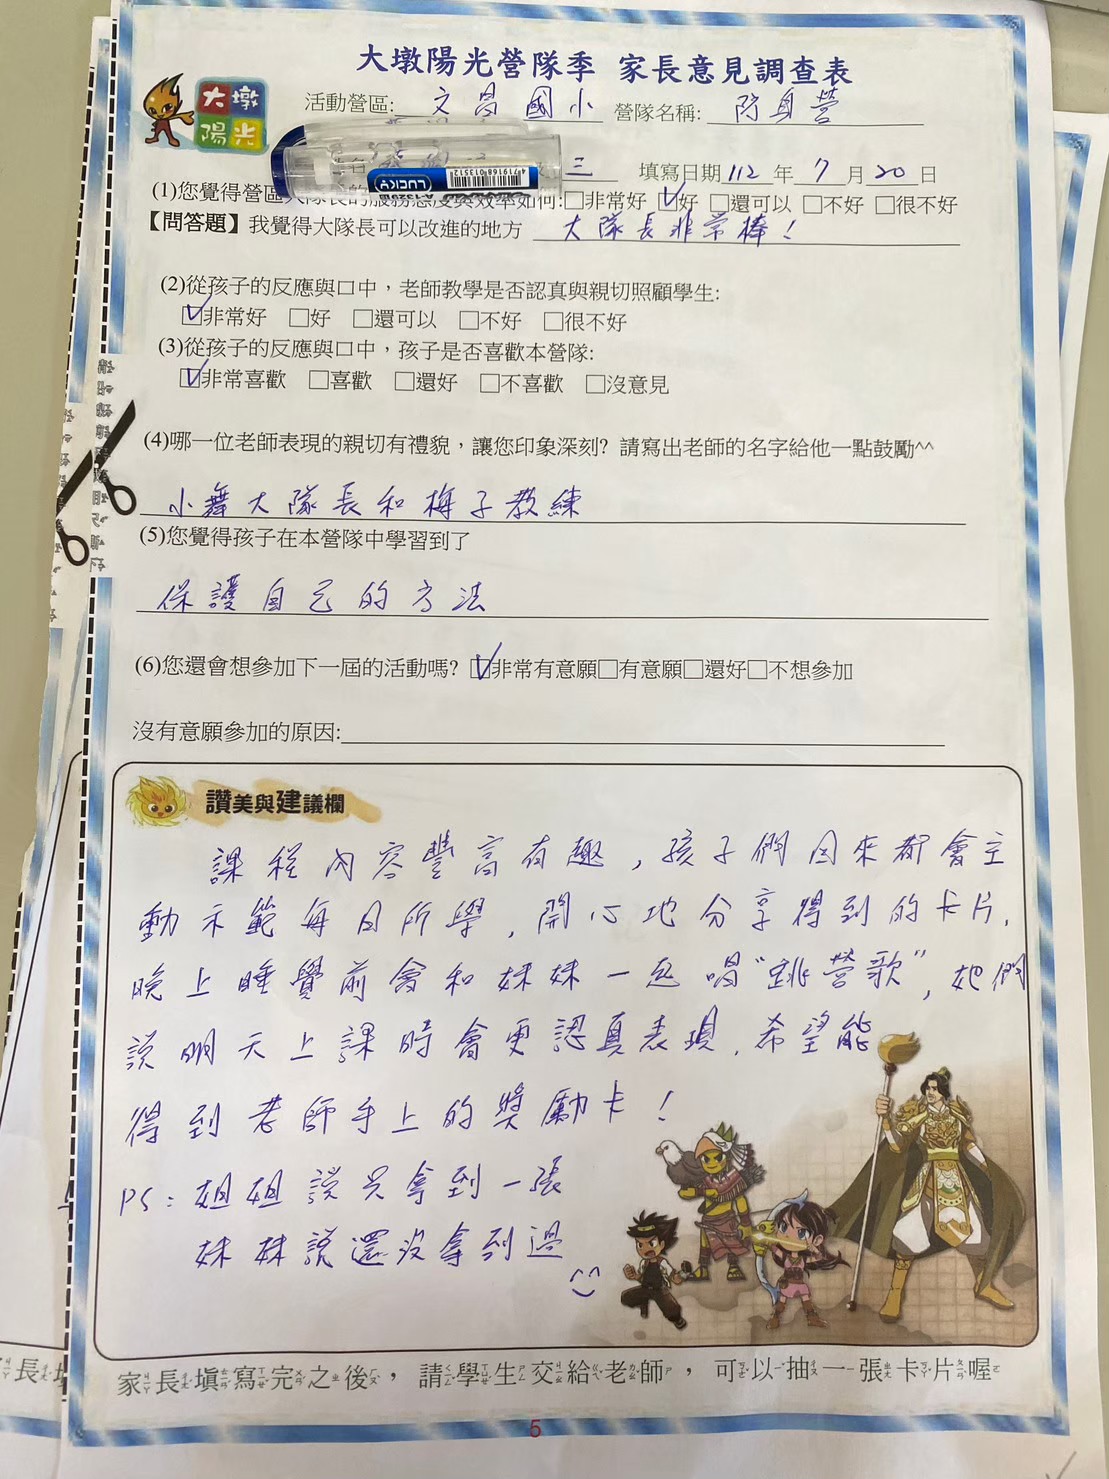 大墩陽光營隊季 家長意見調查表
大墩
陽光
活動營區: 文昌國小 營隊名稱: 防身營
三 填寫日期112年7月20日
LUCKY
4719168013512
(1)您覺得營區大隊長的服務態度與效率如何:□非常好 ☑好 □還可以 □不好 □很不好
【問答題】我覺得大隊長可以改進的地方 大隊長非常棒!
(2)從孩子的反應與口中，老師教學是否認真與親切照顧學生:
☑非常好 □好 □還可以 □不好 □很不好
(3)從孩子的反應與口中，孩子是否喜歡本營隊:
☑非常喜歡 □喜歡 □還好 □不喜歡 □沒意見
(4)哪一位老師表現的親切有禮貌，讓您印象深刻? 請寫出老師的名字給他一點鼓勵^^
小舞大隊長和梅子教練
(5)您覺得孩子在本營隊中學習到了
保護自己的方法
(6)您還會想參加下一屆的活動嗎? ☑非常有意願□有意願□還好□不想參加
沒有意願參加的原因:
讚美與建議欄
課程內容豐富有趣，孩子們回來都會主
動示範每日所學，開心地分享得到的卡片，
晚上睡覺前會和妹妹一起唱“跳營歌”，她們
說明天上課時會更認真表現，希望能
得到老師手上的獎勵卡!
PS: 姐姐說只拿到一張
妹妹說還沒拿到過
家長填寫完之後，請學生交給老師，可以抽一張卡片喔
5